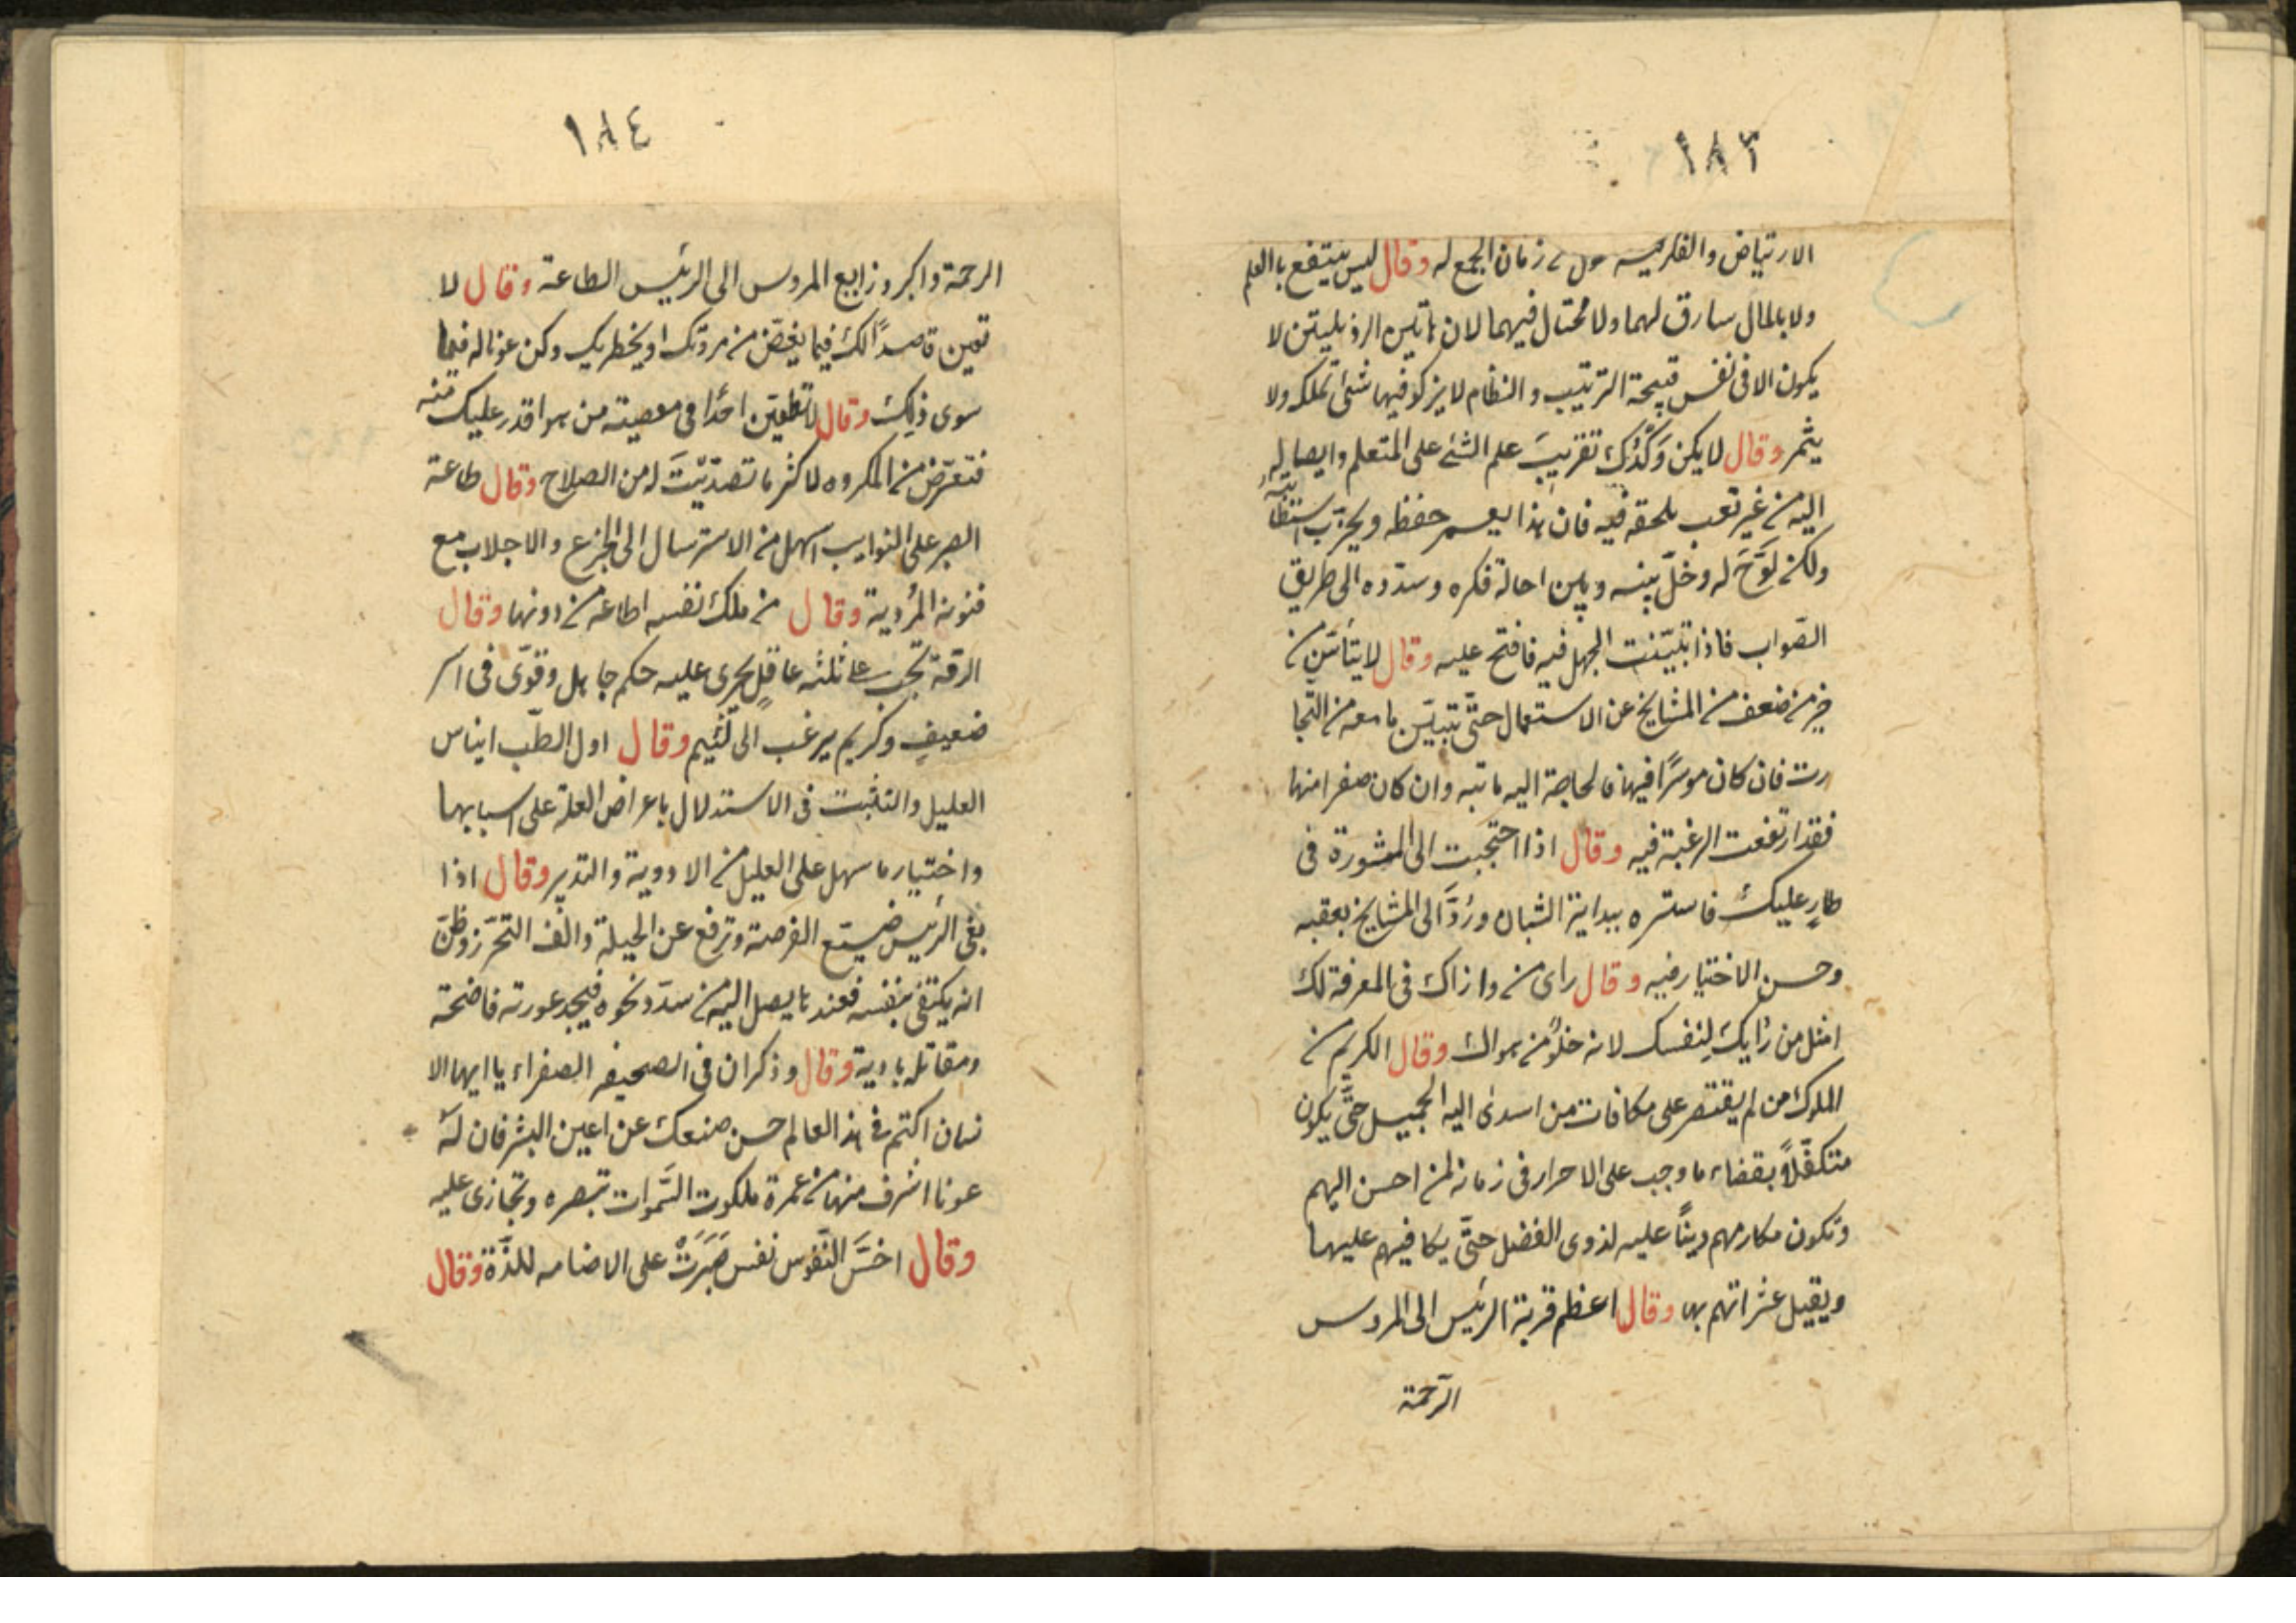 ١٨٣
الارتياض والفكر فيه زمان الجمع له وقال ليس ينتفع باالعلم
ولا بالمال سارق لهما ولا محتال فيهما لان هاتين الرذيلتين لا
يكون الا فى نفس قبيحة الترتيب والنظام لا يزكو فيها شئ تملكه ولا
يثمر وقال لا يكن وَكْدُكَ تقريبَ علم الشئ على المتعلم وايصاله
اليه من غير تعب يلحقه فيه فان هذا يعسر حفظه ويخرّب استنظا
ولكن لَوِّحْ له وخلّ بينه وبين احالة فكره وسدّده الى طريق
الصّواب فاذا تبيّنت الجهل فيه فافتح عليه وقال لا يتأسّن من
خير من ضعف من المشايخ عن الاستعمال حتّى تتبيّن ما معه من التّجا
رت فان كان موسرًا فيها فالحاجة اليه ماتبه وان كان صفرا منها
فقد ارتفعت الرغبة فيه وقال اذا احتجبت الى المشورة فى
طارٍ عليك فاستره ببداية الشبان ورُدَّ الى المشايخ بعقبه
وحسن الاختيار فيه وقال راى من وازاك فى المعرفة لك
امثل من رايك لنفسك لانه خلوٌ من هواك وقال الكريم من
الملوك من لم يقتصر على مكافات من اسدى اليه الجميل حتّى يكون
متكفّلاً بقضاء ما وجب على الاحرار فى زمانه لمن احسن اليهم
وتكون مكارمهم دينًا عليه لذوى الفضل حتّى يكافيهم عليها
ويقيل عثراتهم بها وقال اعظم قربة الرئيس الى المروس
الرّحمة
١٨٤
الرحمة واكبر وزابع المروس الى الرئيس الطاعة وقال لا
تعين قاصدًا لك فيما يغضّ من مروتك او يخطر بك وكن عونا له فيما
سوى ذلك وقال لا تطيعن احدًا فى معصية من هو اقدر عليك منه
فتعرّض من المكروه لاكثر ما تصدّيْتَ له من الصلاح وقال طاعة
الصبر على النوايب اسهل من الاسترسال الى الجزع والاجلاب مع
فنونه المرُدية وقال من ملك نفسه اطاعه من دونها وقال
الرقة تجب على ثلثه عاقلٍ يجرى عليه حكم جاهل وقوىّ فى اسر
ضعيفٍ وكريم يرغب الى لئيم وقال اول الطّب ايناس
العليل والتثبت فى الاستدلال باعراض العلة على اسبابها
واختيار ما سهل على العليل من الادوية والتدبير وقال اذا
بغى الرئيس ضيّع الفرصة وترفع عن الحيلة والف التحرّز وظنّ
انه يكتفى بنفسه فعندها يصل اليه من سدّد نحوه فيجد عورته فاضحة
ومقاتله بادية وقال وذكر ان فى الصحيفه الصفراء يا ايها الا
نسان اكتم فى هذ العالم حسن صنعك عن اعين البشر فان لهَ
عونا اشرف منها من عمرة ملكوت السَّموات تبصره وتجازى عليه
وقال اخسَّ النّفوس نفس صَبَرَتْ على الاضامه للذّة وقال